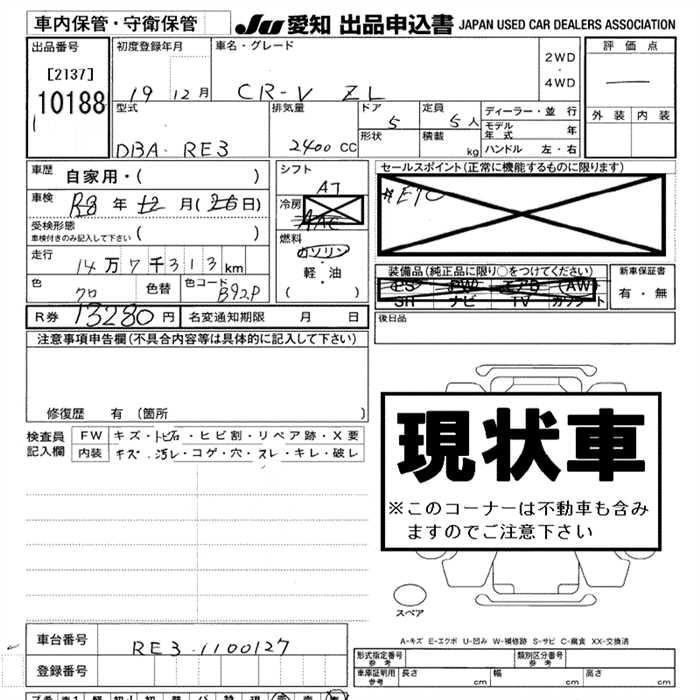 車内保管・守衛保管
JU 愛知 出品申込書 JAPAN USED CAR DEALERS ASSOCIATION
出品番号 初度登録年月 車名・グレード 評価点
[2137] 2WD
・
10188 19 12月 CR-V ZL 4WD —
型式 排気量 ドア 5 定員 5人 ディーラー・並行 外装 内装
DBA-RE3 2400cc 形状 積載 kg モデル年式 年
ハンドル 左・右
車歴 自家用・( ) シフト AT セールスポイント(正常に機能するものに限ります)
車検 R8年12月(26日) 冷房 AAC #E70
受検形態 ( )
車検付きのみ記入して下さい
燃料 ガソリン・軽・油 ( )
走行 14万7千313km 装備品(純正品に限り○をつけてください) 新車保証書
色 クロ 色替 色コード B92P PS PW エアB AW 有・無
SR ナビ TV カワシート
R券 13280円 名変通知期限 月 日 後日品
注意事項申告欄(不具合内容等は具体的に記入して下さい)
修復歴 有 (箇所 )
検査員 FW キズ・トビ石・ヒビ割・リペア跡・X要
記入欄 内装 キズ・汚レ・コゲ・穴・スレ・キレ・破レ
現状車
※このコーナーは不動車も含み
ますのでご注意下さい
スペア
A-キズ E-エクボ U-凹み W-補修跡 S-サビ C-腐食 XX-交換済
車台番号 RE3-1100127 形式指定番号 参考 類別区分番号 参考
登録番号 車庫証明用 参考 長さ cm 幅 cm 高さ cm